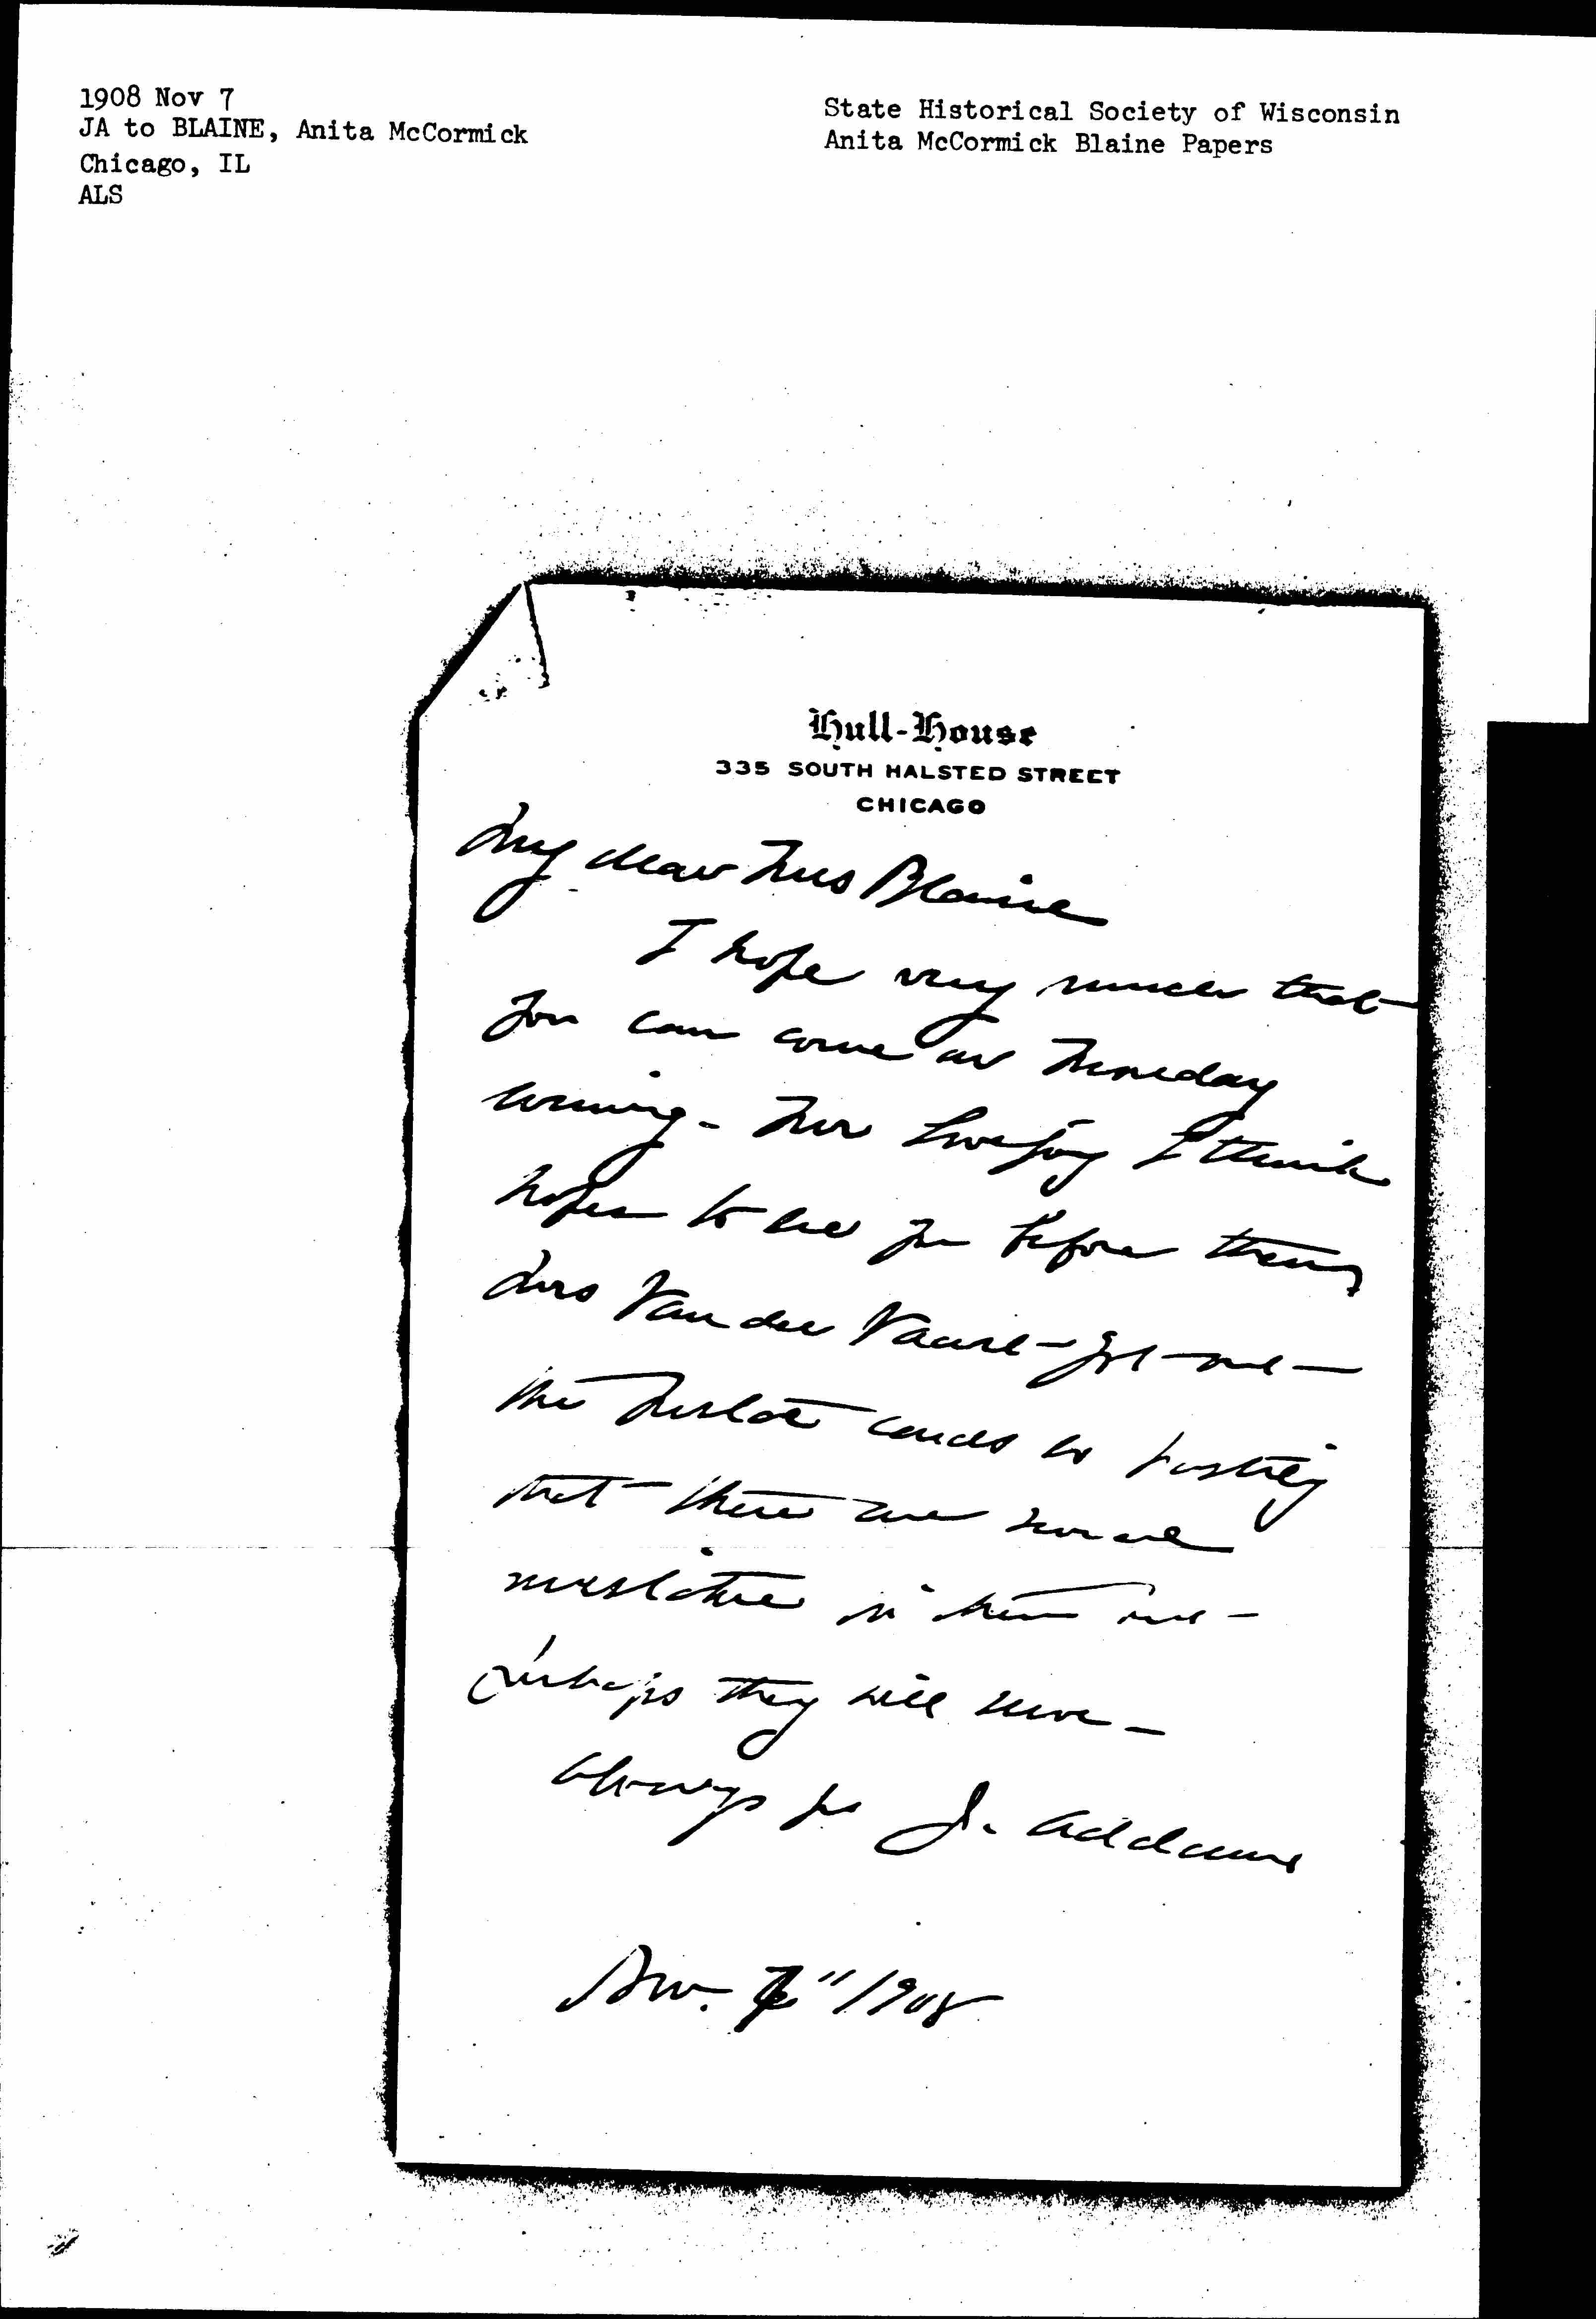 1908 Nov 7
JA to BLAINE, Anita McCormick
Chicago, IL
ALS
State Historical Society of Wisconsin
Anita McCormick Blaine Papers
Hull-House
335 SOUTH HALSTED STREET
CHICAGO
My dear Mrs Blaine
I hope very much that
you can come on
evening - Mr Lovejoy I think
hopes to see you before then,
Mrs Van der Vaart got out
the cards so hastily
that there are some
mistakes in them but
perhaps they will serve -
always yrs J. Addams
Nov. 7" 1908